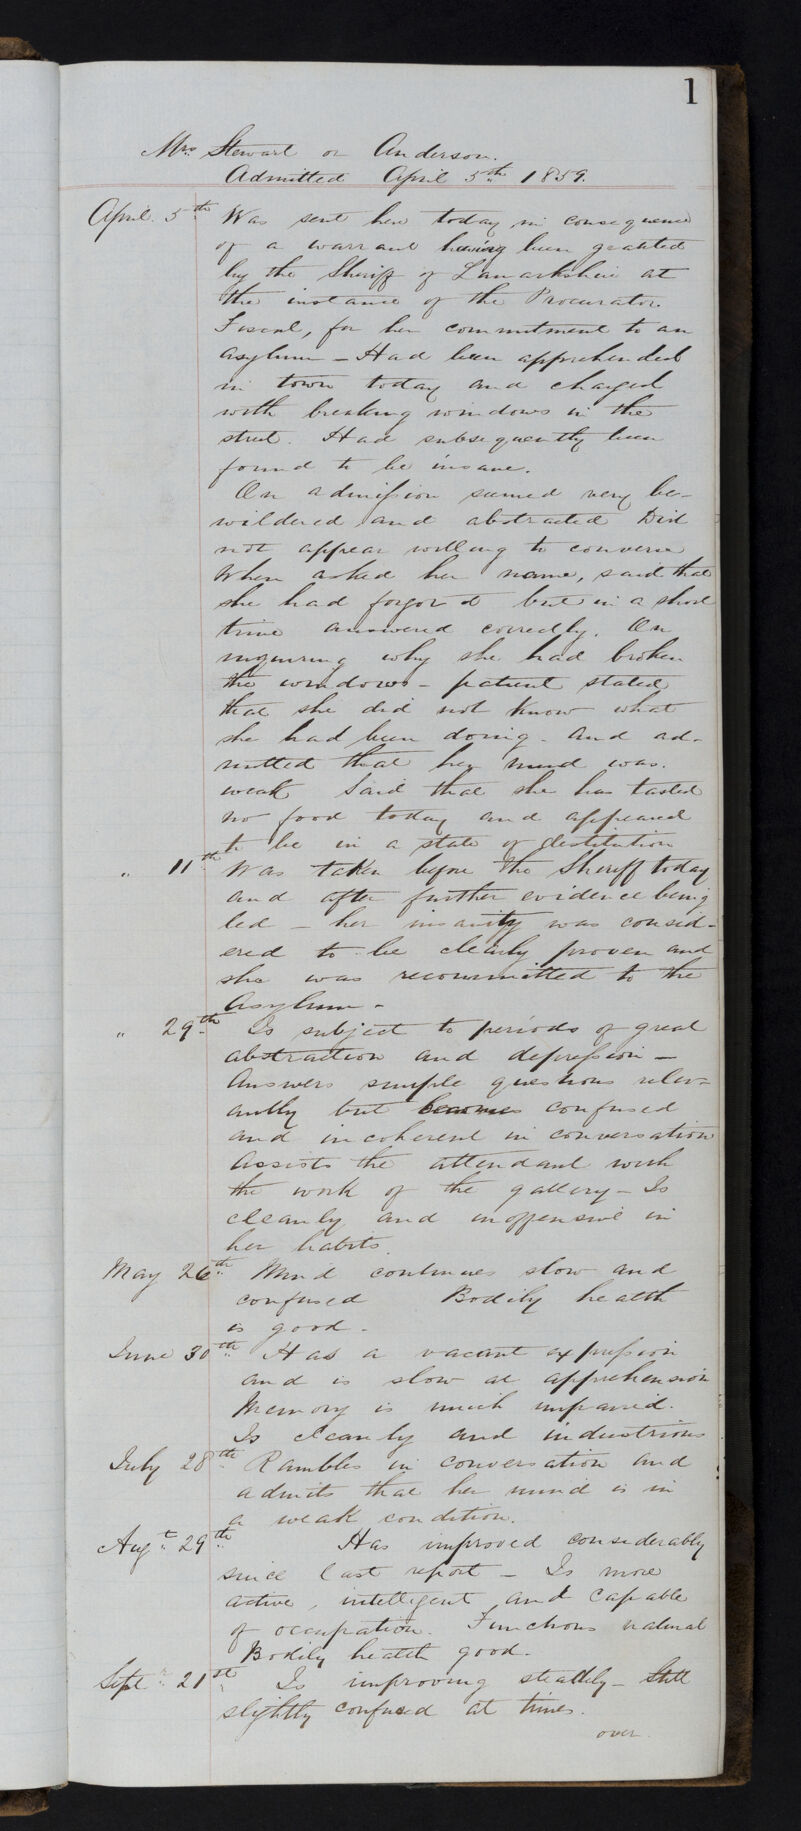 1
Mrs Stewart or Anderson.
Admitted April 5th 1859.
April 5th Was sent here today in consequence
of a warrant having been granted
by the Sheriff of Lanarkshire at
the instance of the Procurator
Fiscal, for her commitment to an
asylum – Had been apprehended
in town today and charged
with breaking windows in the
street. Had subsequently been
found to be insane.
On admission seemed very be-
wildered and abstracted Did
not appear willing to converse
When asked her name, said that
she had forgot it but in a short
time answered correctly. On
inquiring why she had broken
the windows – patient stated
that she did not know what
she had been doing – and ad-
mitted that her mind was
weak Said that she has tasted
no food today and appeared
to be in a state of destitution
" 11th Was taken before the Sheriff today
and after further evidence being
led – her insanity was consid-
ered to be clearly proven and
she was recommitted to the
Asylum –
" 29th Is subject to periods of great
abstraction and depression –
Answers simple questions relev-
antly but becomes confused
and incoherent in conversation
Assists the attendant with
the work of the gallery – Is
cleanly and inoffensive in
her habits.
May 26th Mind continues slow and
confused Bodily health
is good –
June 30th Has a vacant expression
and is slow at apprehension
Memory is much impaired.
Is cleanly and industrious
July 28th Rambles in conversation and
admits that her mind is in
a weak condition.
Augt 29th Has improved considerably
since last report – Is more
active, intelligent and capable
of occupation. Functions natural
Bodily health good –
Septr 21st Is improving steadily – Still
slightly confused at times.
over